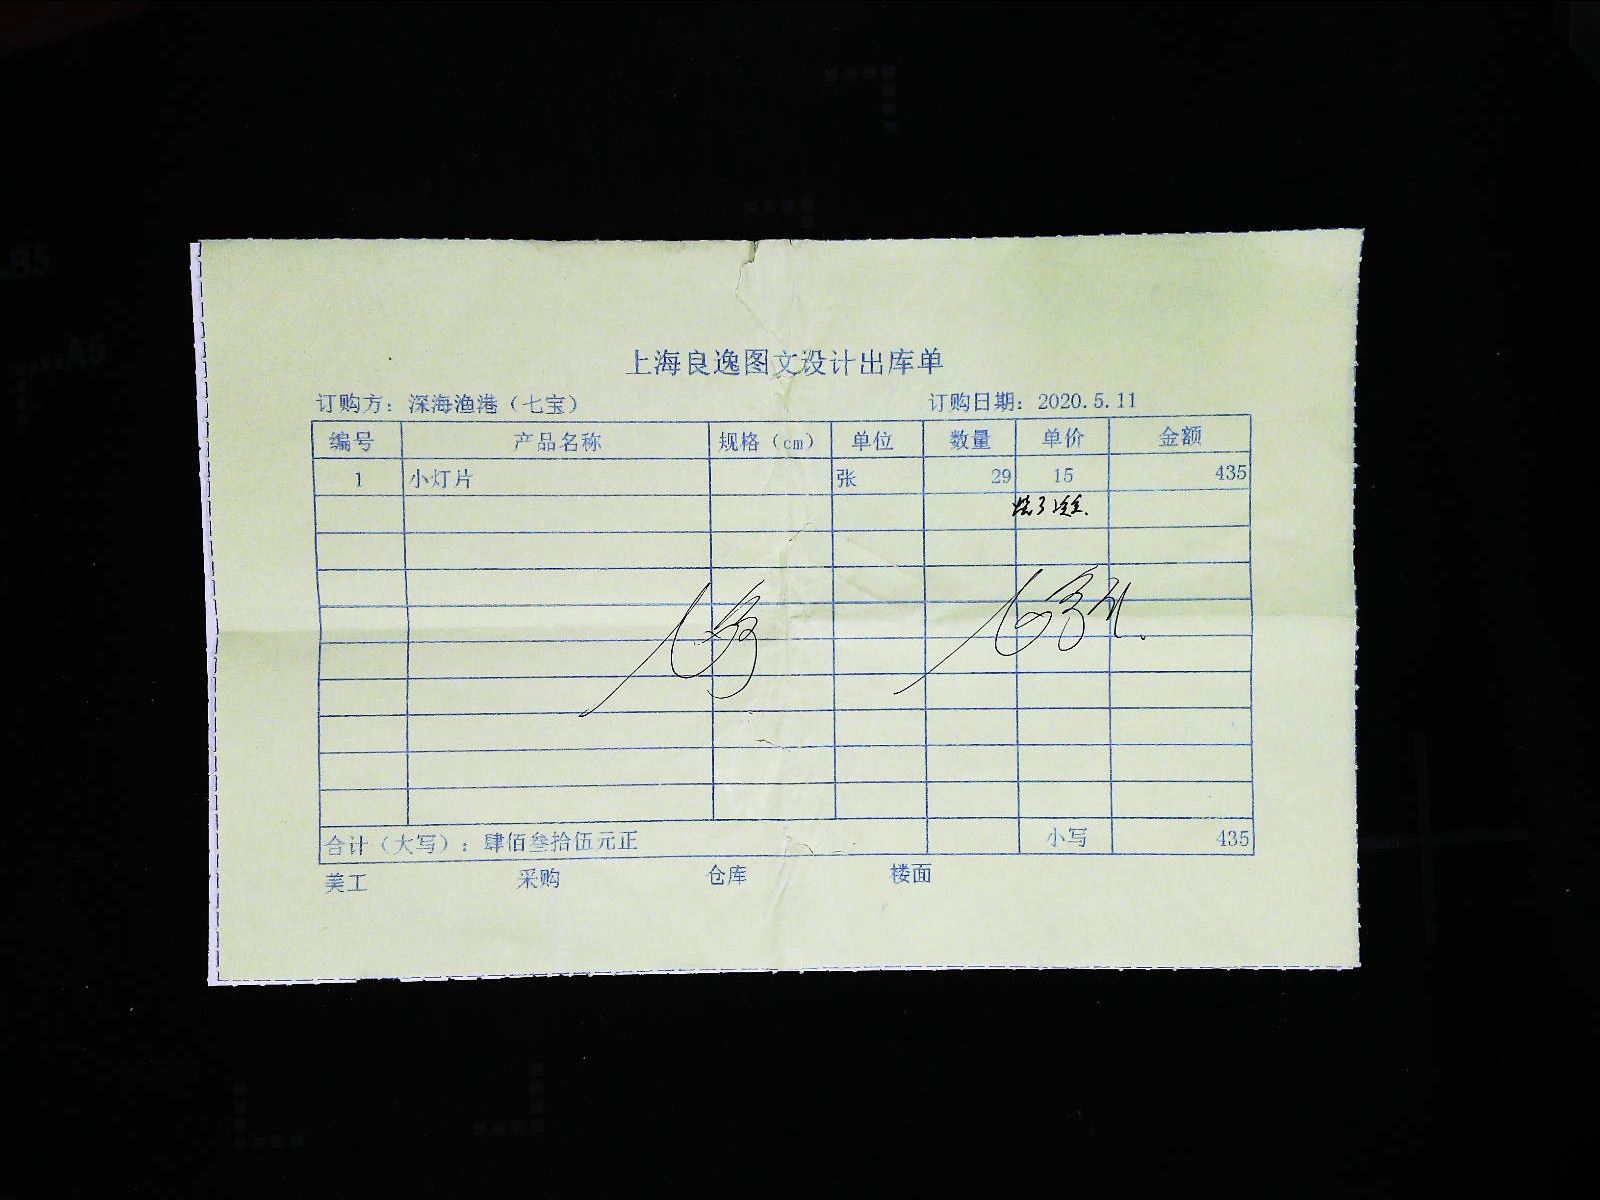 上海良逸图文设计出库单
订购方：深海渔港（七宝） 订购日期：2020.5.11
编号 产品名称 规格（cm） 单位 数量 单价 金额
1 小灯片 张 29 15 435
合计（大写）：肆佰叁拾伍元正 小写 435
美工 采购 仓库 楼面
B5
A5